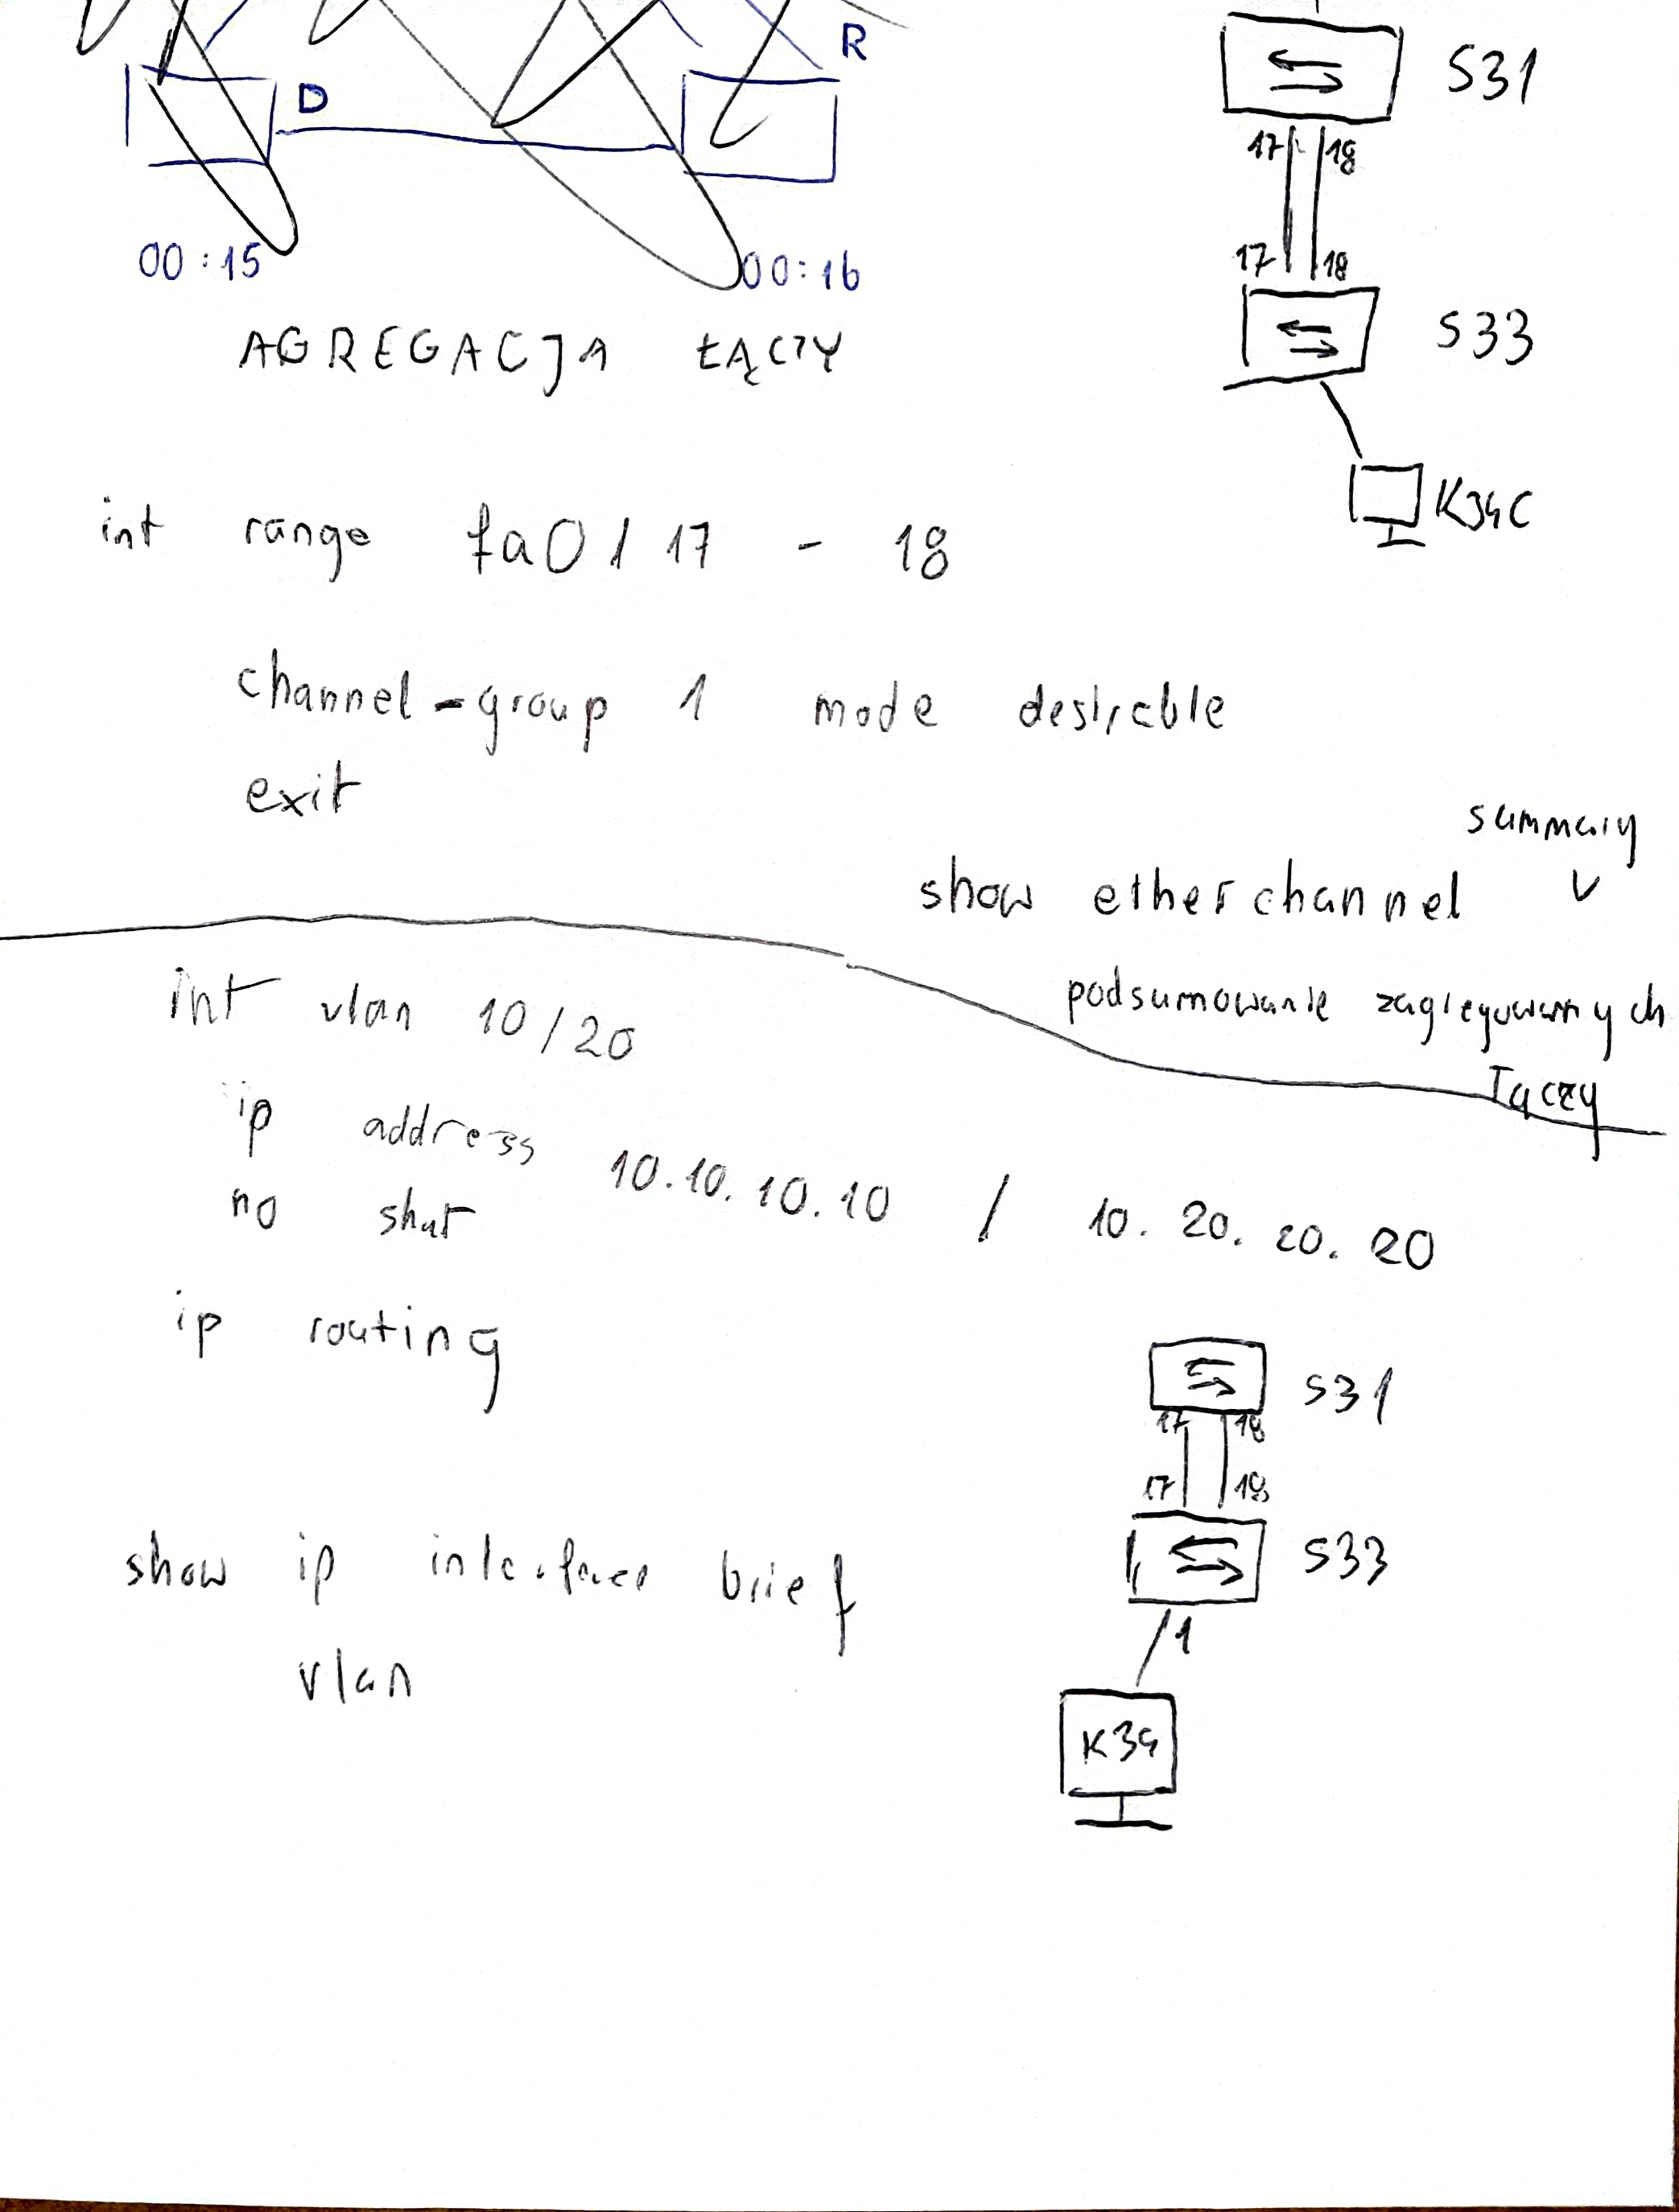 R
D
00:15
00:16
S31
17 18
17 18
S33
AGREGACJA ŁĄCZY
K34C
int range fa0/17 - 18
channel-group 1 mode desirable
exit
summary
show etherchannel v
podsumowanie zagregowanych
łączy
int vlan 10/20
ip address 10.10.10.10 / 10.20.20.20
no shut
ip routing
S31
17 18
17 18
S33
1
show ip interface brief
vlan
K34